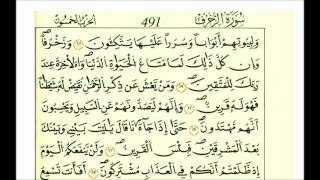 سُورَةُ الزُّخْرُفِ 491 الجزء الخامس والعشرون
وَلِبُيُوتِهِمْ أَبْوَابًا وَسُرُرًا عَلَيْهَا يَتَّكِـُٔونَ ٣٤ وَزُخْرُفًا
وَإِن كُلُّ ذَٰلِكَ لَمَّا مَتَاعُ الْحَيَوٰةِ الدُّنْيَا وَالْأَخِرَةُ عِندَ
رَبِّكَ لِلْمُتَّقِينَ ٣٥ وَمَن يَعْشُ عَن ذِكْرِ الرَّحْمَٰنِ نُقَيِّضْ لَهُ شَيْطَٰنًا
فَهُوَ لَهُ قَرِينٌ ٣٦ وَإِنَّهُمْ لَيَصُدُّونَهُمْ عَنِ السَّبِيلِ وَيَحْسَبُونَ
أَنَّهُم مُّهْتَدُونَ ٣٧ حَتَّىٰ إِذَا جَآءَنَا قَالَ يَٰلَيْتَ بَيْنِي وَبَيْنَكَ
بُعْدَ الْمَشْرِقَيْنِ فَبِئْسَ الْقَرِينُ ٣٨ وَلَن يَنفَعَكُمُ الْيَوْمَ
إِذ ظَّلَمْتُمْ أَنَّكُمْ فِي الْعَذَابِ مُشْتَرِكُونَ ٣٩ أَفَأَنتَ تُسْمِعُ